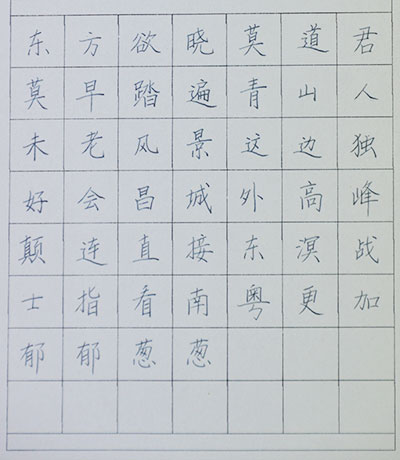 东方欲晓莫道君
莫早踏遍青山人
未老风景这边独
好会昌城外高峰
颠连直接东溟战
士指看南粤更加
郁郁葱葱